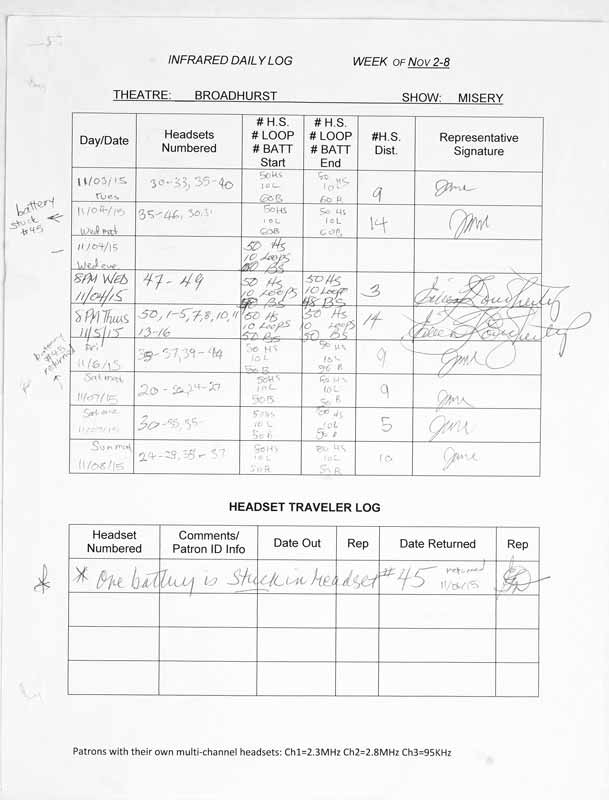 INFRARED DAILY LOG WEEK OF NOV 2-8
THEATRE: BROADHURST SHOW: MISERY
Day/Date Headsets Numbered # H.S. # LOOP # BATT Start # H.S. # LOOP # BATT End #H.S. Dist. Representative Signature
11/03/15 Tues 30-33, 35-40 50HS 10L 60B 50 HS 10L 60B 9 Jane
battery stuck #45
11/04/15 Wed mat 35-46, 30,31 50HS 10L 60B 50 HS 10L 60B 14 Jane
11/04/15 Wed eve 50 HS 10 Loops BS
8PM WED 11/04/15 47-49 50 HS 10 LOOPS BS 50 HS 10 Loop 48 BS 3
8PM Thurs 11/5/15 50, 1-5, 7, 8, 10, 11 13-16 50 HS 10 Loops 50 BS 50 HS 10 Loops 50 BS 14
battery #45 returned
Fri 11/6/15 -37, 39-44 50 HS 10L 50B 50 HS 10L 9 Jane
Sat mat 11/07/15 20- 24-27 50HS 10L 50B 50 HS 10L 50B 9 Jane
Sat eve 11/07/15 30- 10L 50B 50 HS 10L 50B 5 Jane
Sun mat 11/08/15 24-28, 35-37 50HS 10L 50B 50 HS 10L 50B 10 Jane
HEADSET TRAVELER LOG
Headset Numbered Comments/ Patron ID Info Date Out Rep Date Returned Rep
* * One battery is stuck in headset #45 returned 11/04/15
Patrons with their own multi-channel headsets: Ch1=2.3MHz Ch2=2.8MHz Ch3=95KHz